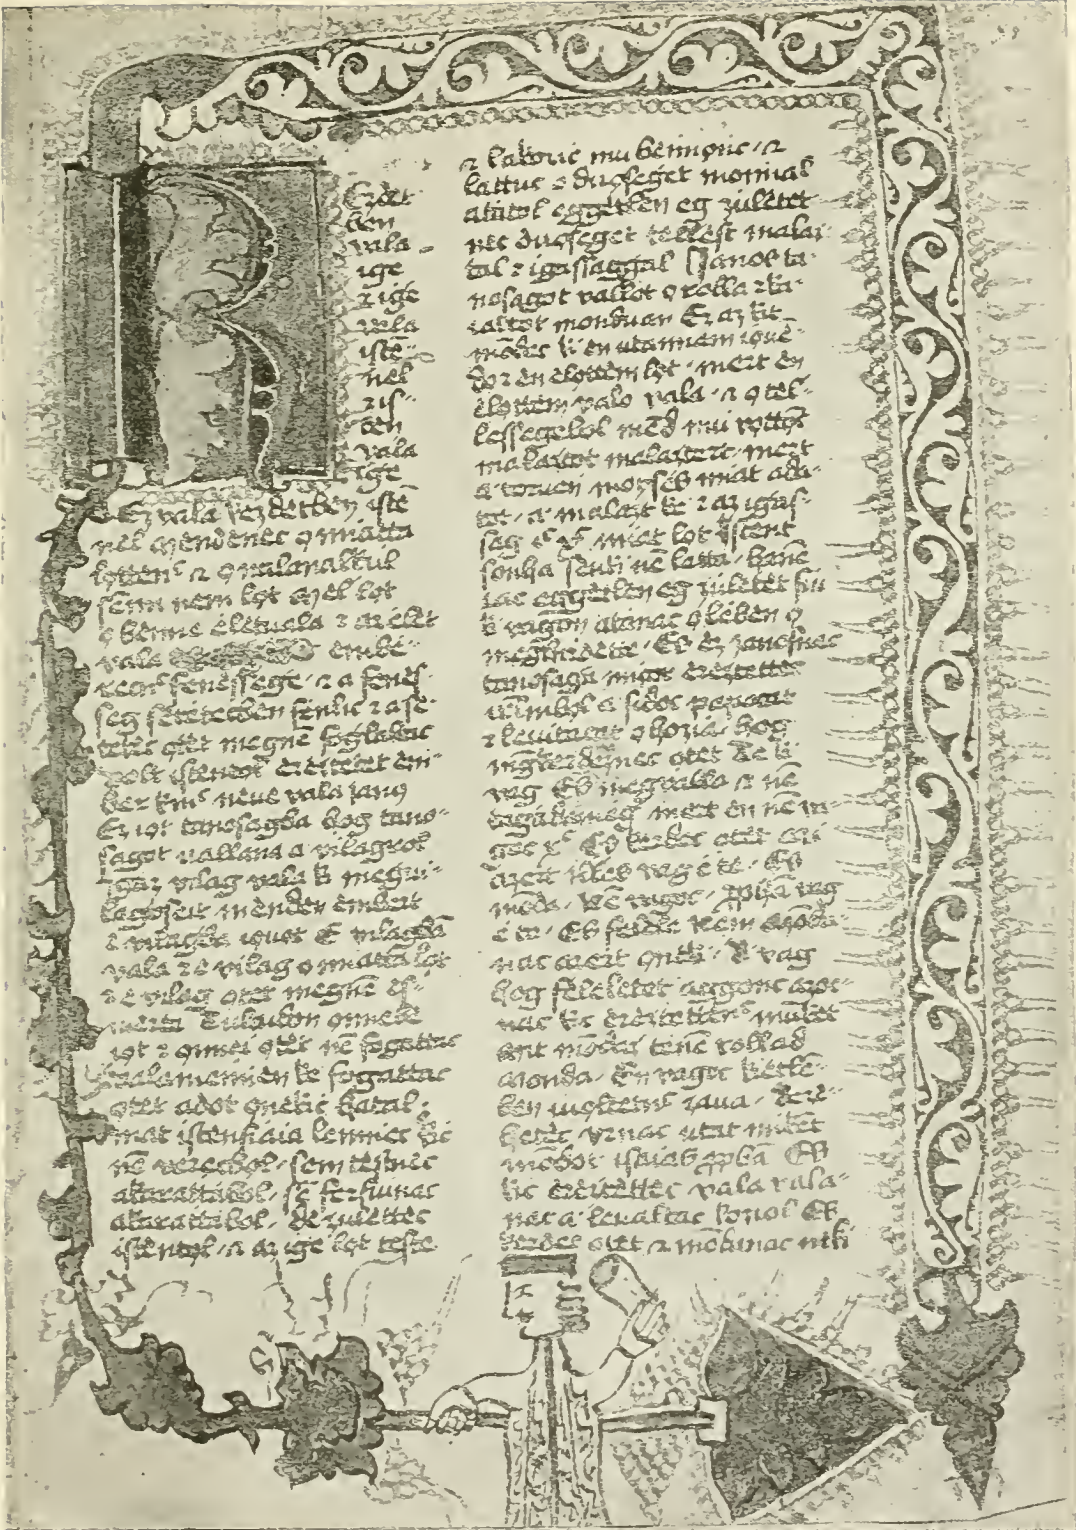 K Ezdet
ben
vala
ige
z ige
vala
istē-
nel
z is-
ten
vala
ige
Ez vala kezdetben istē
nel Mendenec o miatta
lottenc z o nalanalkul
semi nem lot Mel lot
o benne elet vala z az elet
vala embe-
recnc fenessege z a fenes-
seg setetecben fenlic z a se-
tetec otet megnē foglaltac
Volt istentol erestetet em-
ber kinc neue vala janos
Ez iot tanosagba hog tano-
sagot vallana a vilagrol
Igaz vilag vala ki megui-
lagoseit menden embert
e vilagba iouot E vilagbā
vala z e vilag o miatta lot
z e vilag otet megnē es-
merte Tulaidon onneie
iot z onnei otet nē fogattac
Valamenien ke fogattac
otet adot onekic hatal-
mat istenfiaia lenniec kic
nē verecbol sem testnec
akarattiabol sē ferfiunac
akarattiabol de zulettec
istentol z az ige lot teste
z lakozic mu bennonc z
lattuc o ducseget monnial
atiatol eggetlen eg zuletet
nec ducseget tellest malaz-
tal z igassaggal Janos ta-
nosagot vallot o rolla z ki-
altot monduan Ez az kit
mōdec ki en utannam iouē-
do z en elottem lot mert en
elottem valo vala z o tel-
lessegebol mēd mu vottōc
malaztot malaztert mert
a toruen moyses miat ada-
tot a malazt ke z az igas-
seg ic xc miat lot Istent
soniha senki nē latta hanē
czac eggetlen eg zuletet fiu
ki vagon atianac o keben o
meghirdette Es ez janosnac
tanosaga miat erestettec
ilimbol a sidoc papocat
z leuitacat o hozia hog
mgkerdeznec otet Te ki
vag Es megualla z nē
tagada meg mert en nē va-
goc xc Es kerdec otet mi
azert illes vag e te Es
mōda Nē vagoc ppha vag
e te Es felele Nem Mōda-
nac azert oneki Ki vag
hog feleletet aggonc azoc-
nac kic erestettenc munket
mit mōdaz tenē rollad
Monda En vagoc kietlē-
ben iuoltetnc zaua ere-
hetec vrnac utat mikēt
mōdot isaias ppha Es
kic erestettec vala vala-
nac a leualtac kozol Es
kerdec otet z mōdanac neki